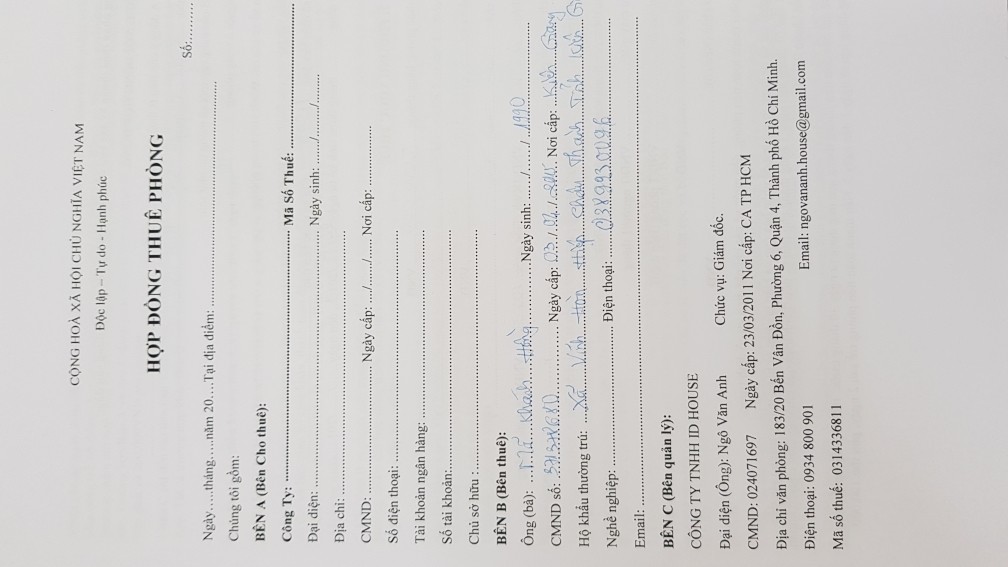 CỘNG HOÀ XÃ HỘI CHỦ NGHĨA VIỆT NAM
Độc lập – Tự do - Hạnh phúc
HỢP ĐỒNG THUÊ PHÒNG
Số:.........
Ngày.....tháng......năm 20.....Tại địa điểm:..........................................................................
Chúng tôi gồm:
BÊN A (Bên Cho thuê):
Công Ty: ................................................................ Mã Số Thuế: ..................................
Đại diện: ................................................................ Ngày sinh: ....../....../......
Địa chỉ: ................................................................
CMND: .................................. Ngày cấp: .../....../...... Nơi cấp: ....................
Số điện thoại: ................................................................
Tài khoản ngân hàng:......................................................
Số tài khoản:................................................................
Chủ sở hữu :................................................................
BÊN B (Bên thuê):
Ông (bà): ..... Khánh Hồng..................Ngày sinh: ....../....../...1990
CMND số: .................... Ngày cấp: 03./.02./..... Nơi cấp: Kiên Giang
Hộ khẩu thường trú: ...Xã Vĩnh Hòa Hiệp Châu Thành Tỉnh Kiên Gi
Nghề nghiệp: ........................................ Điện thoại: ....................
Email: ........................................................................................................
BÊN C (Bên quản lý):
CÔNG TY TNHH ID HOUSE
Đại diện (Ông): Ngô Văn Anh Chức vụ: Giám đốc.
CMND: 024071697 Ngày cấp: 23/03/2011 Nơi cấp: CA TP HCM
Địa chỉ văn phòng: 183/20 Bến Vân Đồn, Phường 6, Quận 4, Thành phố Hồ Chí Minh.
Điện thoại: 0934 800 901 Email: ngovananh.house@gmail.com
Mã số thuế: 0314336811